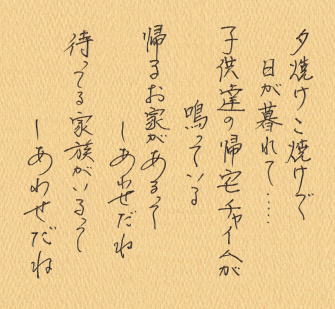 夕焼けこ焼けで
日が暮れて‥‥
子供達の帰宅チャイムが
鳴っている
帰るお家があるって
しあわせだね
待ってる家族がいるって
しあわせだね